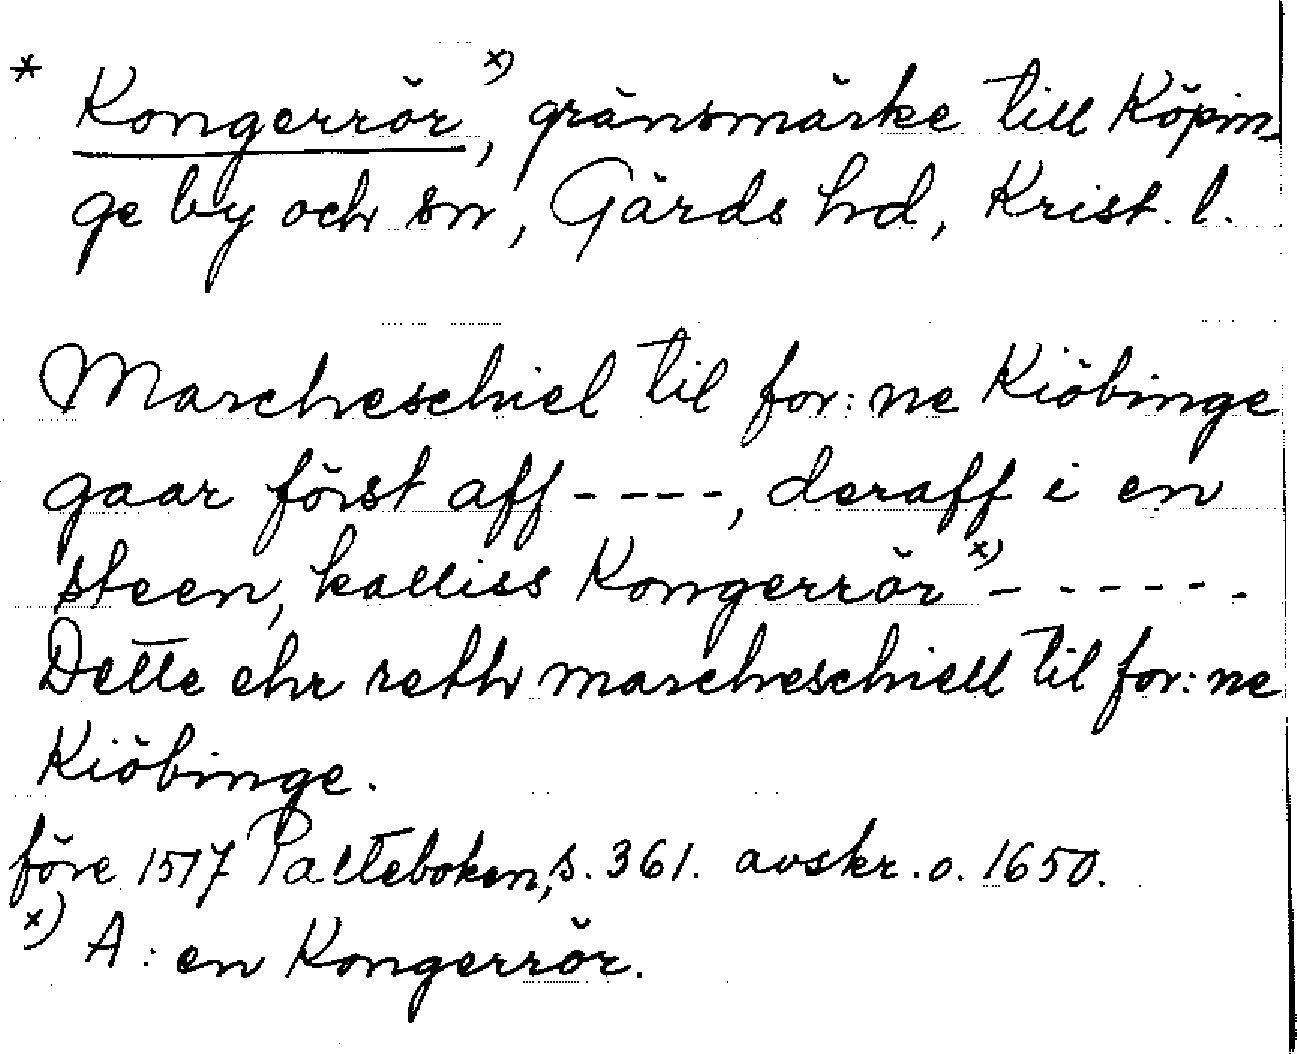 * Kongerrör x), gränsmärke till Köpin-
ge by och sn, Gärds hd, Krist. l.
Marcheschiel til for:ne Kiöbinge
gaar först aff ----, deraff i en
steen, kalliss Kongerrör x) ------
Dette ehr reth marcheschiell til for:ne
Kiöbinge.
före 1517 Palteboken, s. 361. avskr. o. 1650.
x) A: en Kongerrör.